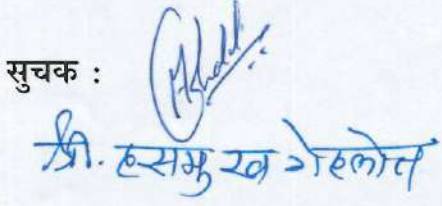 सुचक :
श्री. हसमुख गेहलोत